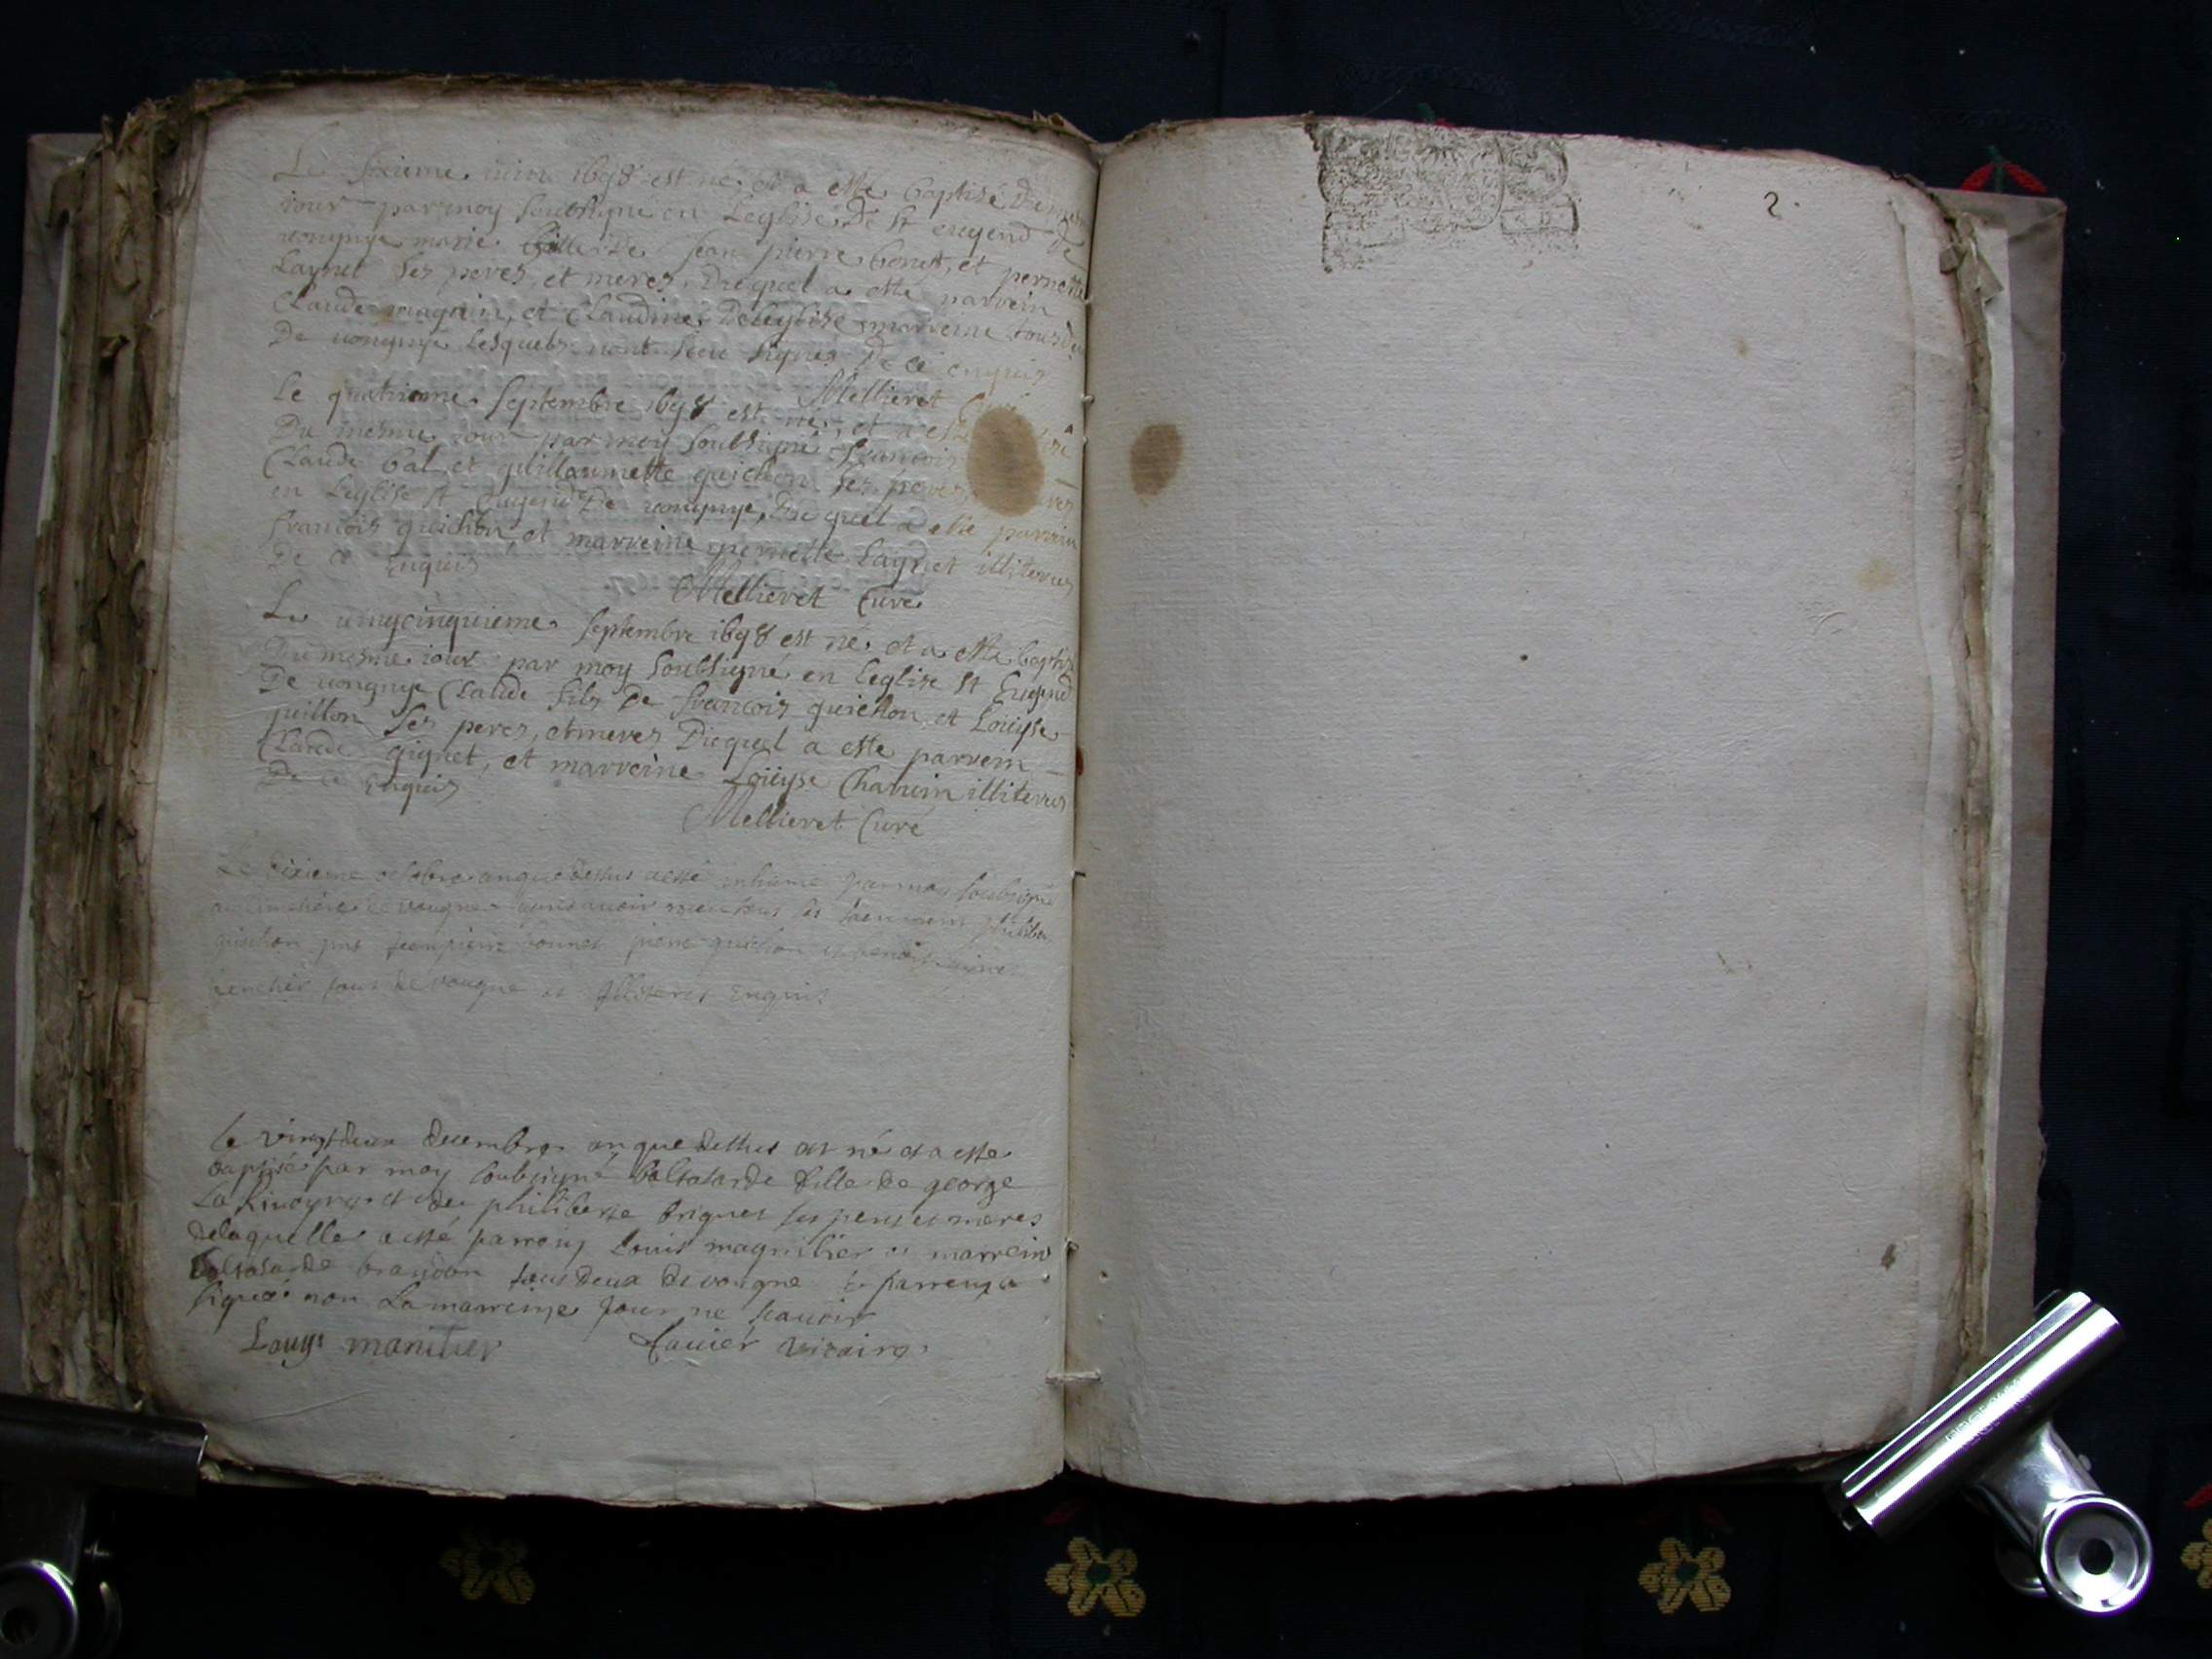 Le sixieme iuin 1698 est né et a esté baptisé Du mesm
iour par moy soubsigné en Leglise De St eugend De
uongnye marie fille De Jean pierre bonet, et pernette
Laynet ses peres, et meres, Duquel a esté parrein
Claude magnin, et Claudine Deleglise marreine tous de
De uongnye lesquels nont sceu signer De ce enquis
Mellieret Curé
Le quatrieme Septembre 1698 est né, et a esté
Du mesme iour par moy soubsigné francois
Claude bal, et guillaumette guichon ses peres
en Leglise St Eugend De uongnye, Duquel a esté parrain
francois guichon, et marreine pernette Laynet illiterez
De ce Enquis
Mellieret Curé
Le uingcinquieme Septembre 1698 est né et a esté baptisé
Du mesme iour par moy soubsigné en Leglise St Eugend
De uongnye Claude fils De francois guichon, et Loüyse
juillon ses peres, et meres Duquel a esté parrein
Claude gignet, et marreine Loüyse Chanein illiterez
De ce Enquis
Mellieret Curé
Le dixieme octobre an que dessus a esté inhumé par moy soubsigné
au cimetiere de vougne apres avoir receu tous les sacremens
guichon jean pierre bonnet pierre guichon et benoist
tous de vougne et illiteres Enquis
le vingt deux decembre an que dessus est né et a esté
baptisé par moy soubsigné baltasarde fille de george
La Rivoyre et de philiberte briguet ses peres et meres
delaquelle a esté parrein Louis magnilier et marreine
baltasarde brandon tous deux de vougne le parrein a
signé non La marreine pour ne scavoir
Louys manilier favier vicaire
2.